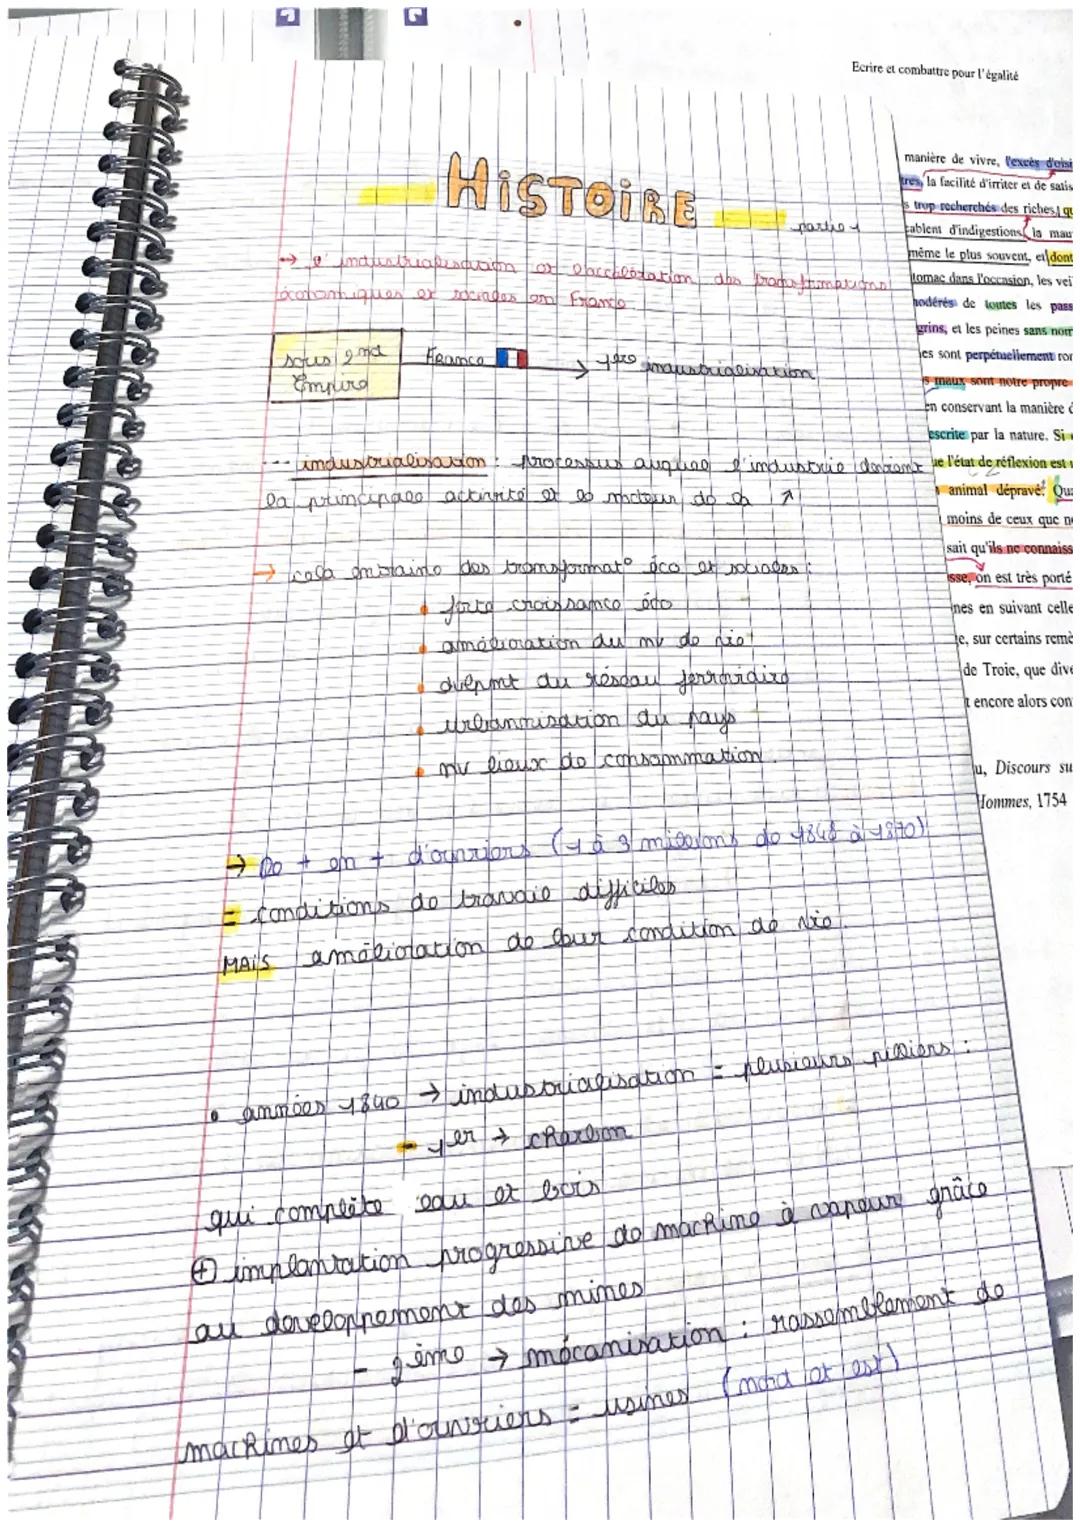 HISTOIRE
partie 1
→ l'industrialisation et l'accélération des transformations
économiques et sociales en France
sous 2nd
Empire
France
1ère industrialisation
industrialisation : processus auquel l'industrie devient
la principale activité et le moteur de la ↗
→ cela entraine des transformat° éco et sociales :
forte croissance éco
amélioration du nv de vie
dvlpmt du réseau ferroviaire
urbannisation du pays
nv lieux de consommation.
→ De + en + d'ouvriers (1 à 3 millions de 1848 à 1870)
= conditions de travail difficiles
MAIS amélioration de leur condition de vie.
• années 1840 → industrialisation = plusieurs pilliers :
- 1er → charbon
qui complète eau et bois
⊕ implantation progressive de machine à vapeur grâce
au developpement des mines
- 2ème → mécanisation : rassemblement de
machines et d'ouvriers = usines (nord et est)
Ecrire et combattre pour l'égalité
manière de vivre, l'excès d'oisi
tres, la facilité d'irriter et de satis
s trop recherchés des riches, qu
cablent d'indigestions, la mau
même le plus souvent, et dont
tomac dans l'occasion, les vei
modérés de toutes les pass
grins, et les peines sans nom
es sont perpétuellement ron
s maux sont notre propre
en conservant la manière d
escrite par la nature. Si
ue l'état de réflexion est
animal dépravé. Qua
moins de ceux que n
sait qu'ils ne connaiss
sse, on est très porté
nes en suivant celle
e, sur certains remè
de Troie, que dive
t encore alors con
u, Discours su
Hommes, 1754